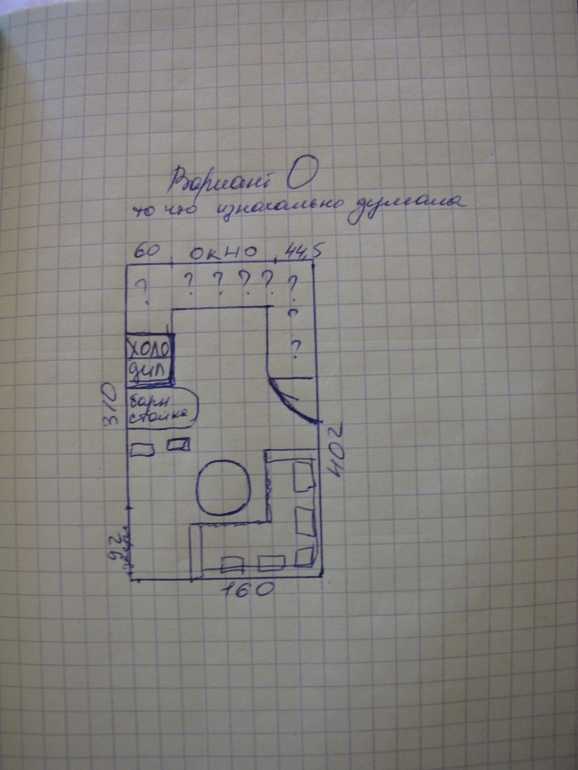 Вариант 0
то что изначально думала
60 окно 44,5
? ? ? ? ? ?
?
?
холо
дил
310
барн
стойка
402
92
160